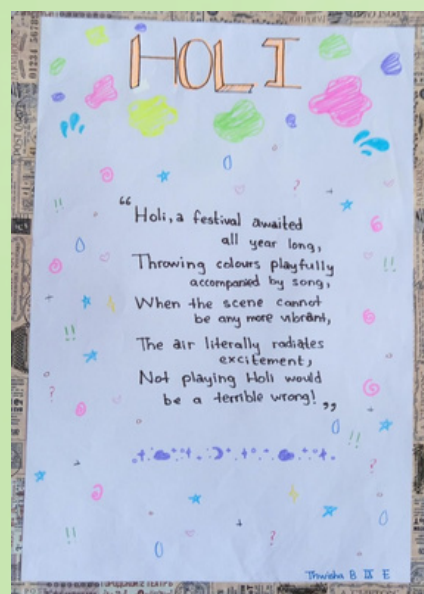 HOLI
“Holi, a festival awaited
all year long,
Throwing colours playfully
accompanied by song,
When the scene cannot
be any more vibrant,
The air literally radiates
excitement,
Not playing Holi would
be a terrible wrong!”
Thwisha B IX E